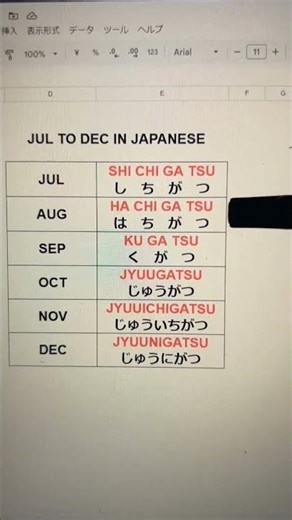 挿入 表示形式 データ ツール ヘルプ
100% ¥ % .0 .00 123 Arial 11
D E F G
JUL TO DEC IN JAPANESE
JUL SHI CHI GA TSU
し ち が つ
AUG HA CHI GA TSU
は ち が つ
SEP KU GA TSU
く が つ
OCT JYUUGATSU
じゅうがつ
NOV JYUUICHIGATSU
じゅういちがつ
DEC JYUUNIGATSU
じゅうにがつ